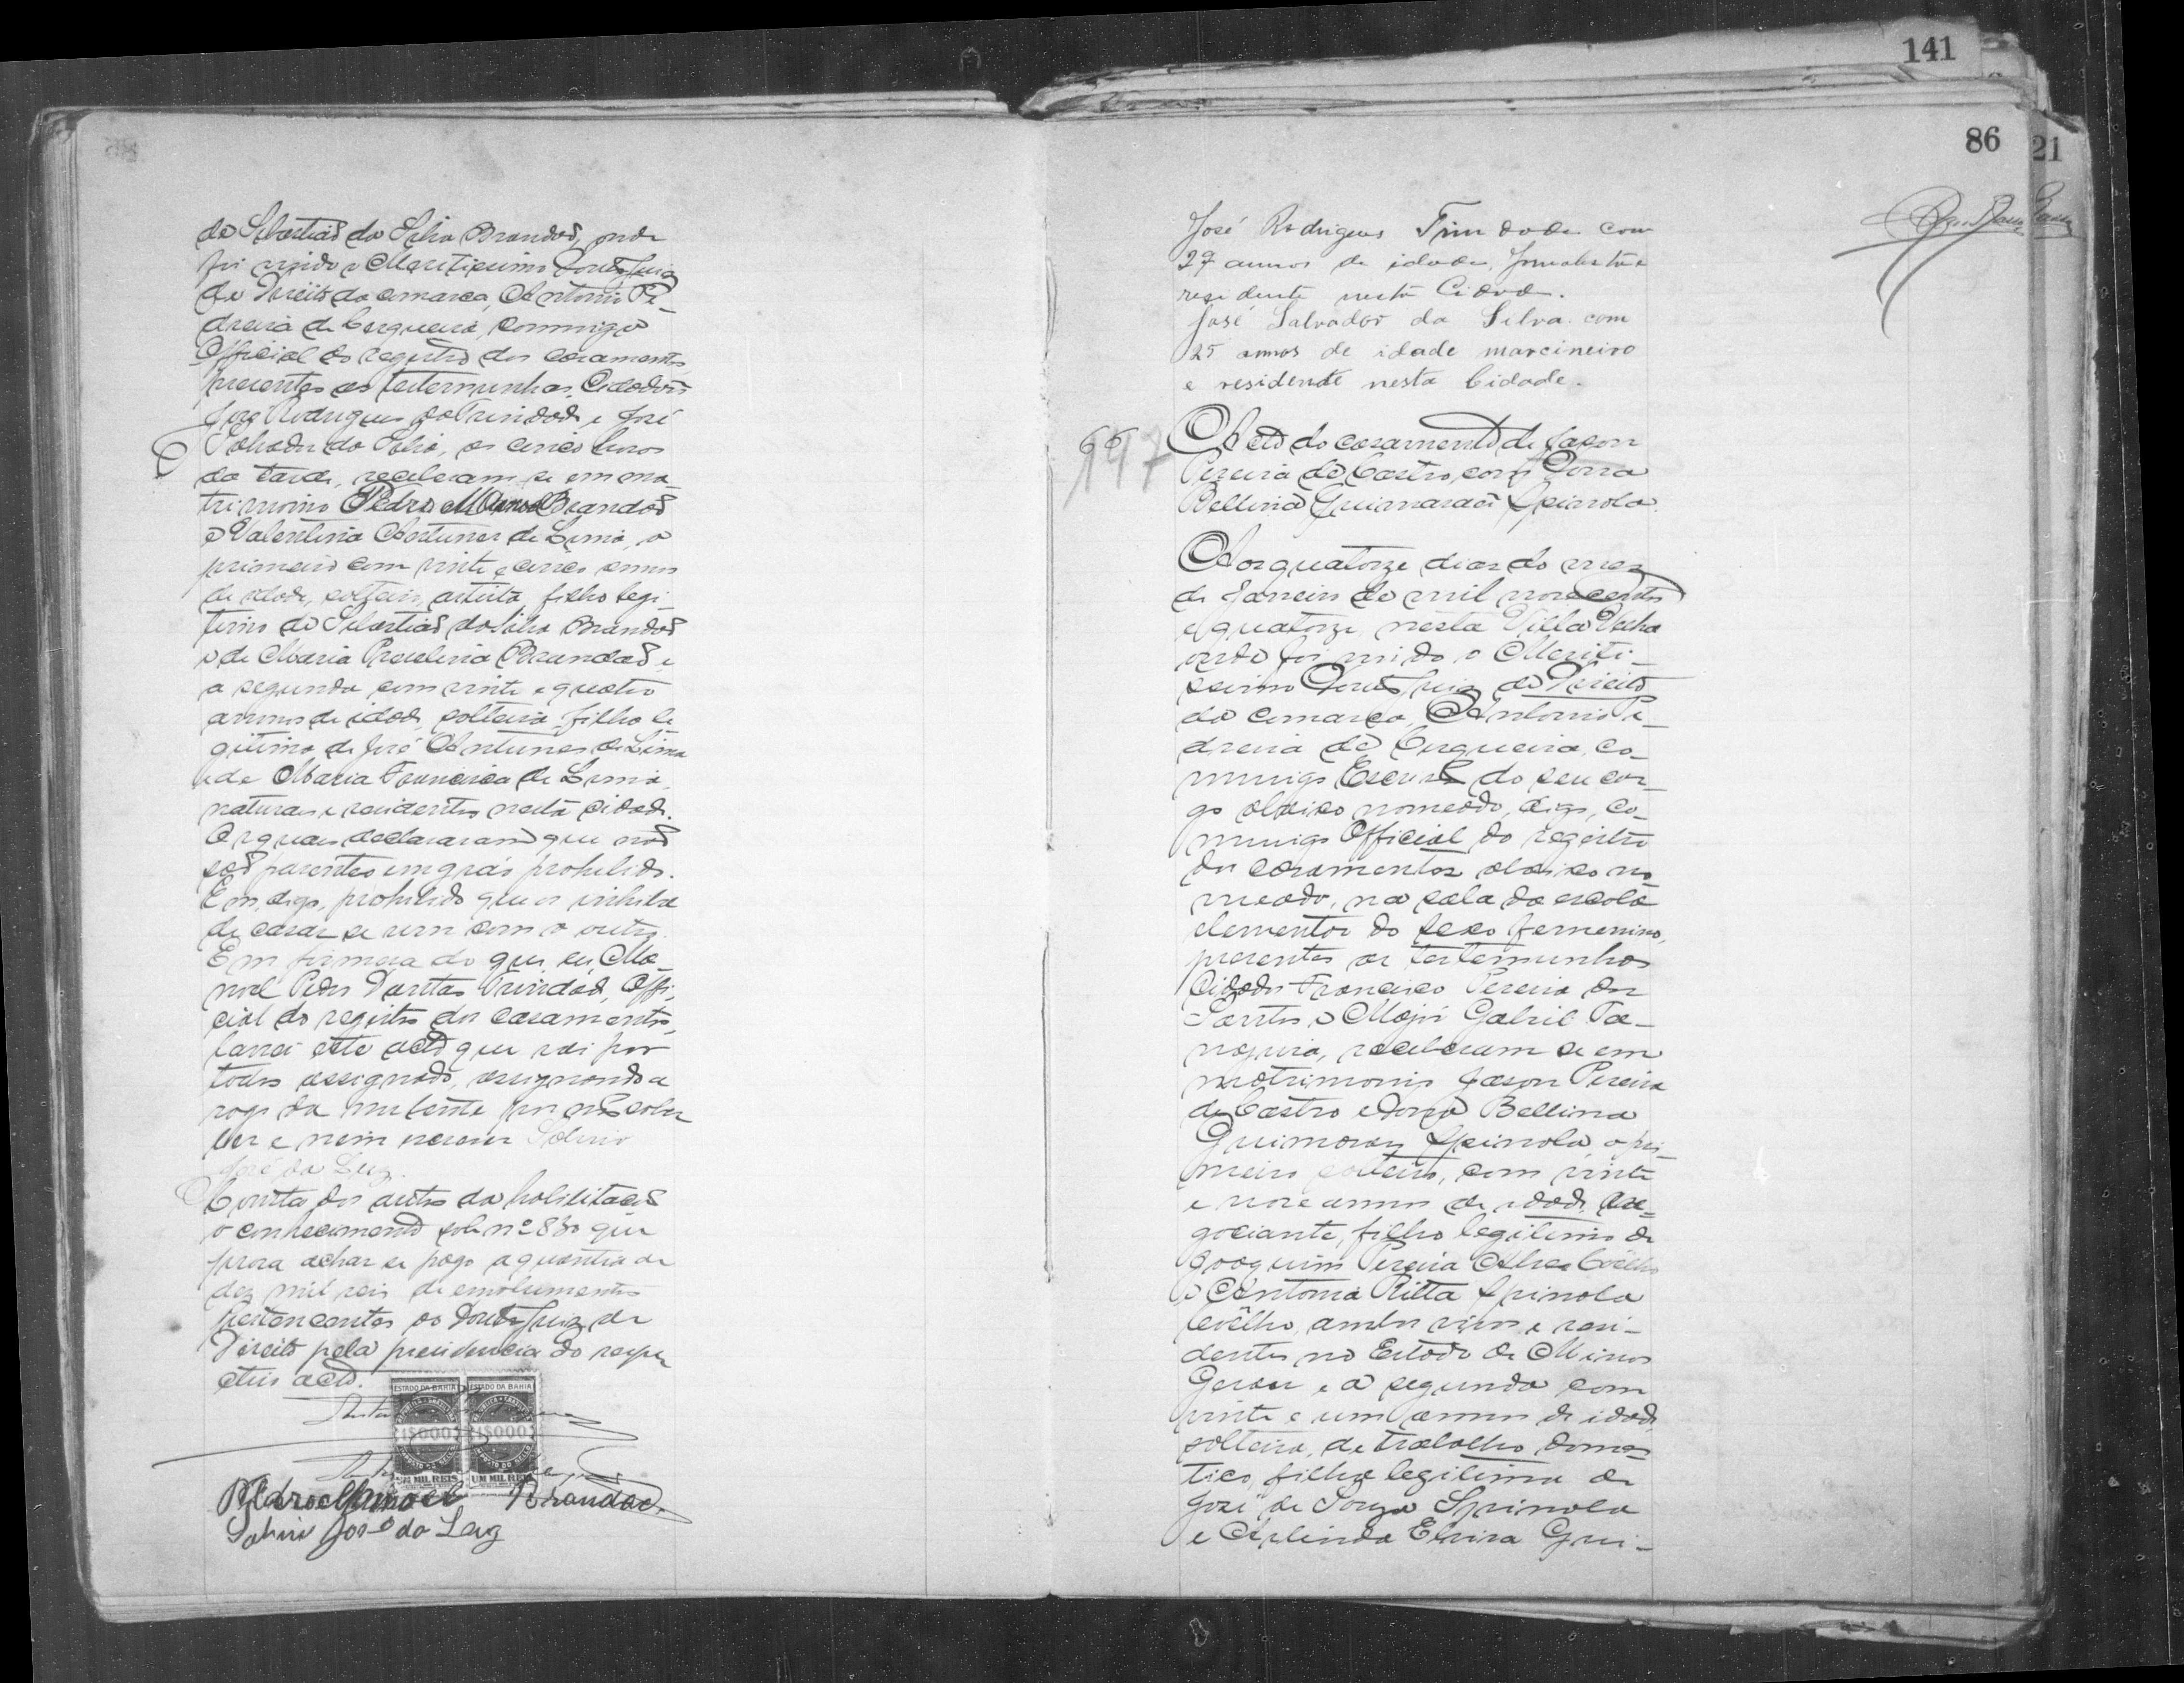 de Sebastião da Silva Brandão, onde
foi vindo o Meritissimo Doutor Juiz
de Direito da comarca, Antonio Pe-
dreira de Cerqueira, commigo
Official do registro dos casamentos
presentes as testemunhas, Cidadãos
José Rodrigues da Trindade e José
Salvador da Silva, as cinco horas
da tarde, receberam-se em ma-
trimonio Pedro Manoel Brandão
e Valentina Antunes de Lima, o
primeiro com vinte e cinco annos
de idade, solteiro, artista, filho legi-
timo de Sebastião da Silva Brandão
e de Maria Brandão, e
a segunda com vinte e quatro
annos de idade, solteira, filha le
gitima de José Antunes de Lima
e de Maria Francisca de Lima,
naturaes e residentes nesta cidade.
Os quaes declararam que não
são parentes em gráo prohibido.
Em, digo, prohibido que os inhiba
de casar-se um com o outro.
Em firmesa do que eu, Ma-
noel Pedro Dantas Trindade, Offi-
cial do registro dos casamentos,
lavrei este acto que vai por
todos assignado, assignando a
rogo da nubente por não saber
ler e nem escrever Salvio
José da Luz.
Consta dos autos da habilitação
o conhecimento sob nº 830 que
prova achar-se pago a quantia de
dez mil reis de emolumentos
pertencentes ao Doutor Juiz de
Direito pela presidencia do respe
ctivo acto.
ESTADO DA BAHIA ESTADO DA BAHIA
1$000 1$000
UM MIL REIS UM MIL REIS
Pedro Manoel Brandão,
Salvio José da Luz
141
86 21
José Rodrigues Trindade com
27 annos de idade,
residente nesta Cidade.
José Salvador da Silva com
25 annos de idade marcineiro
e residente nesta Cidade.
197
Acto do casamento de Jason
Pereira de Castro, com Dona
Bellina Guimarães Spinola.
Aos quatorze dias do mez
de Janeiro de mil novecentos
e quatorze, nesta Villa Velha
onde foi vindo o Meriti-
ssimo Doutor Juiz de Direito
da comarca, Antonio Pe-
dreira de Cerqueira, co-
mmigo Escrivão do seu car-
go abaixo nomeado, digo, co-
mmigo Official do registro
dos casamentos abaixo no-
meado, na sala da escola
elementar do sexo femenino,
presentes as testemunhas
Cidadão Francisco Pereira dos
Santos e Major Gabriel Ta-
najura, receberam-se em
matrimonio Jason Pereira
de Castro e Dona Bellina
Guimarães Spinola, o pri-
meiro solteiro, com vinte
e nove annos de idade, ne-
gociante, filho legitimo de
Joaquim Pereira Coêlho
e Antonia Ritta Spinola
Coêlho, ambos vivos e resi-
dentes no Estado de Minas
Geraes e a segunda com
vinte e um annos de idade
solteira, de trabalho domes-
tico, filha legitima de
José de Souza Spinola
e Arlinda Elvira Gui-